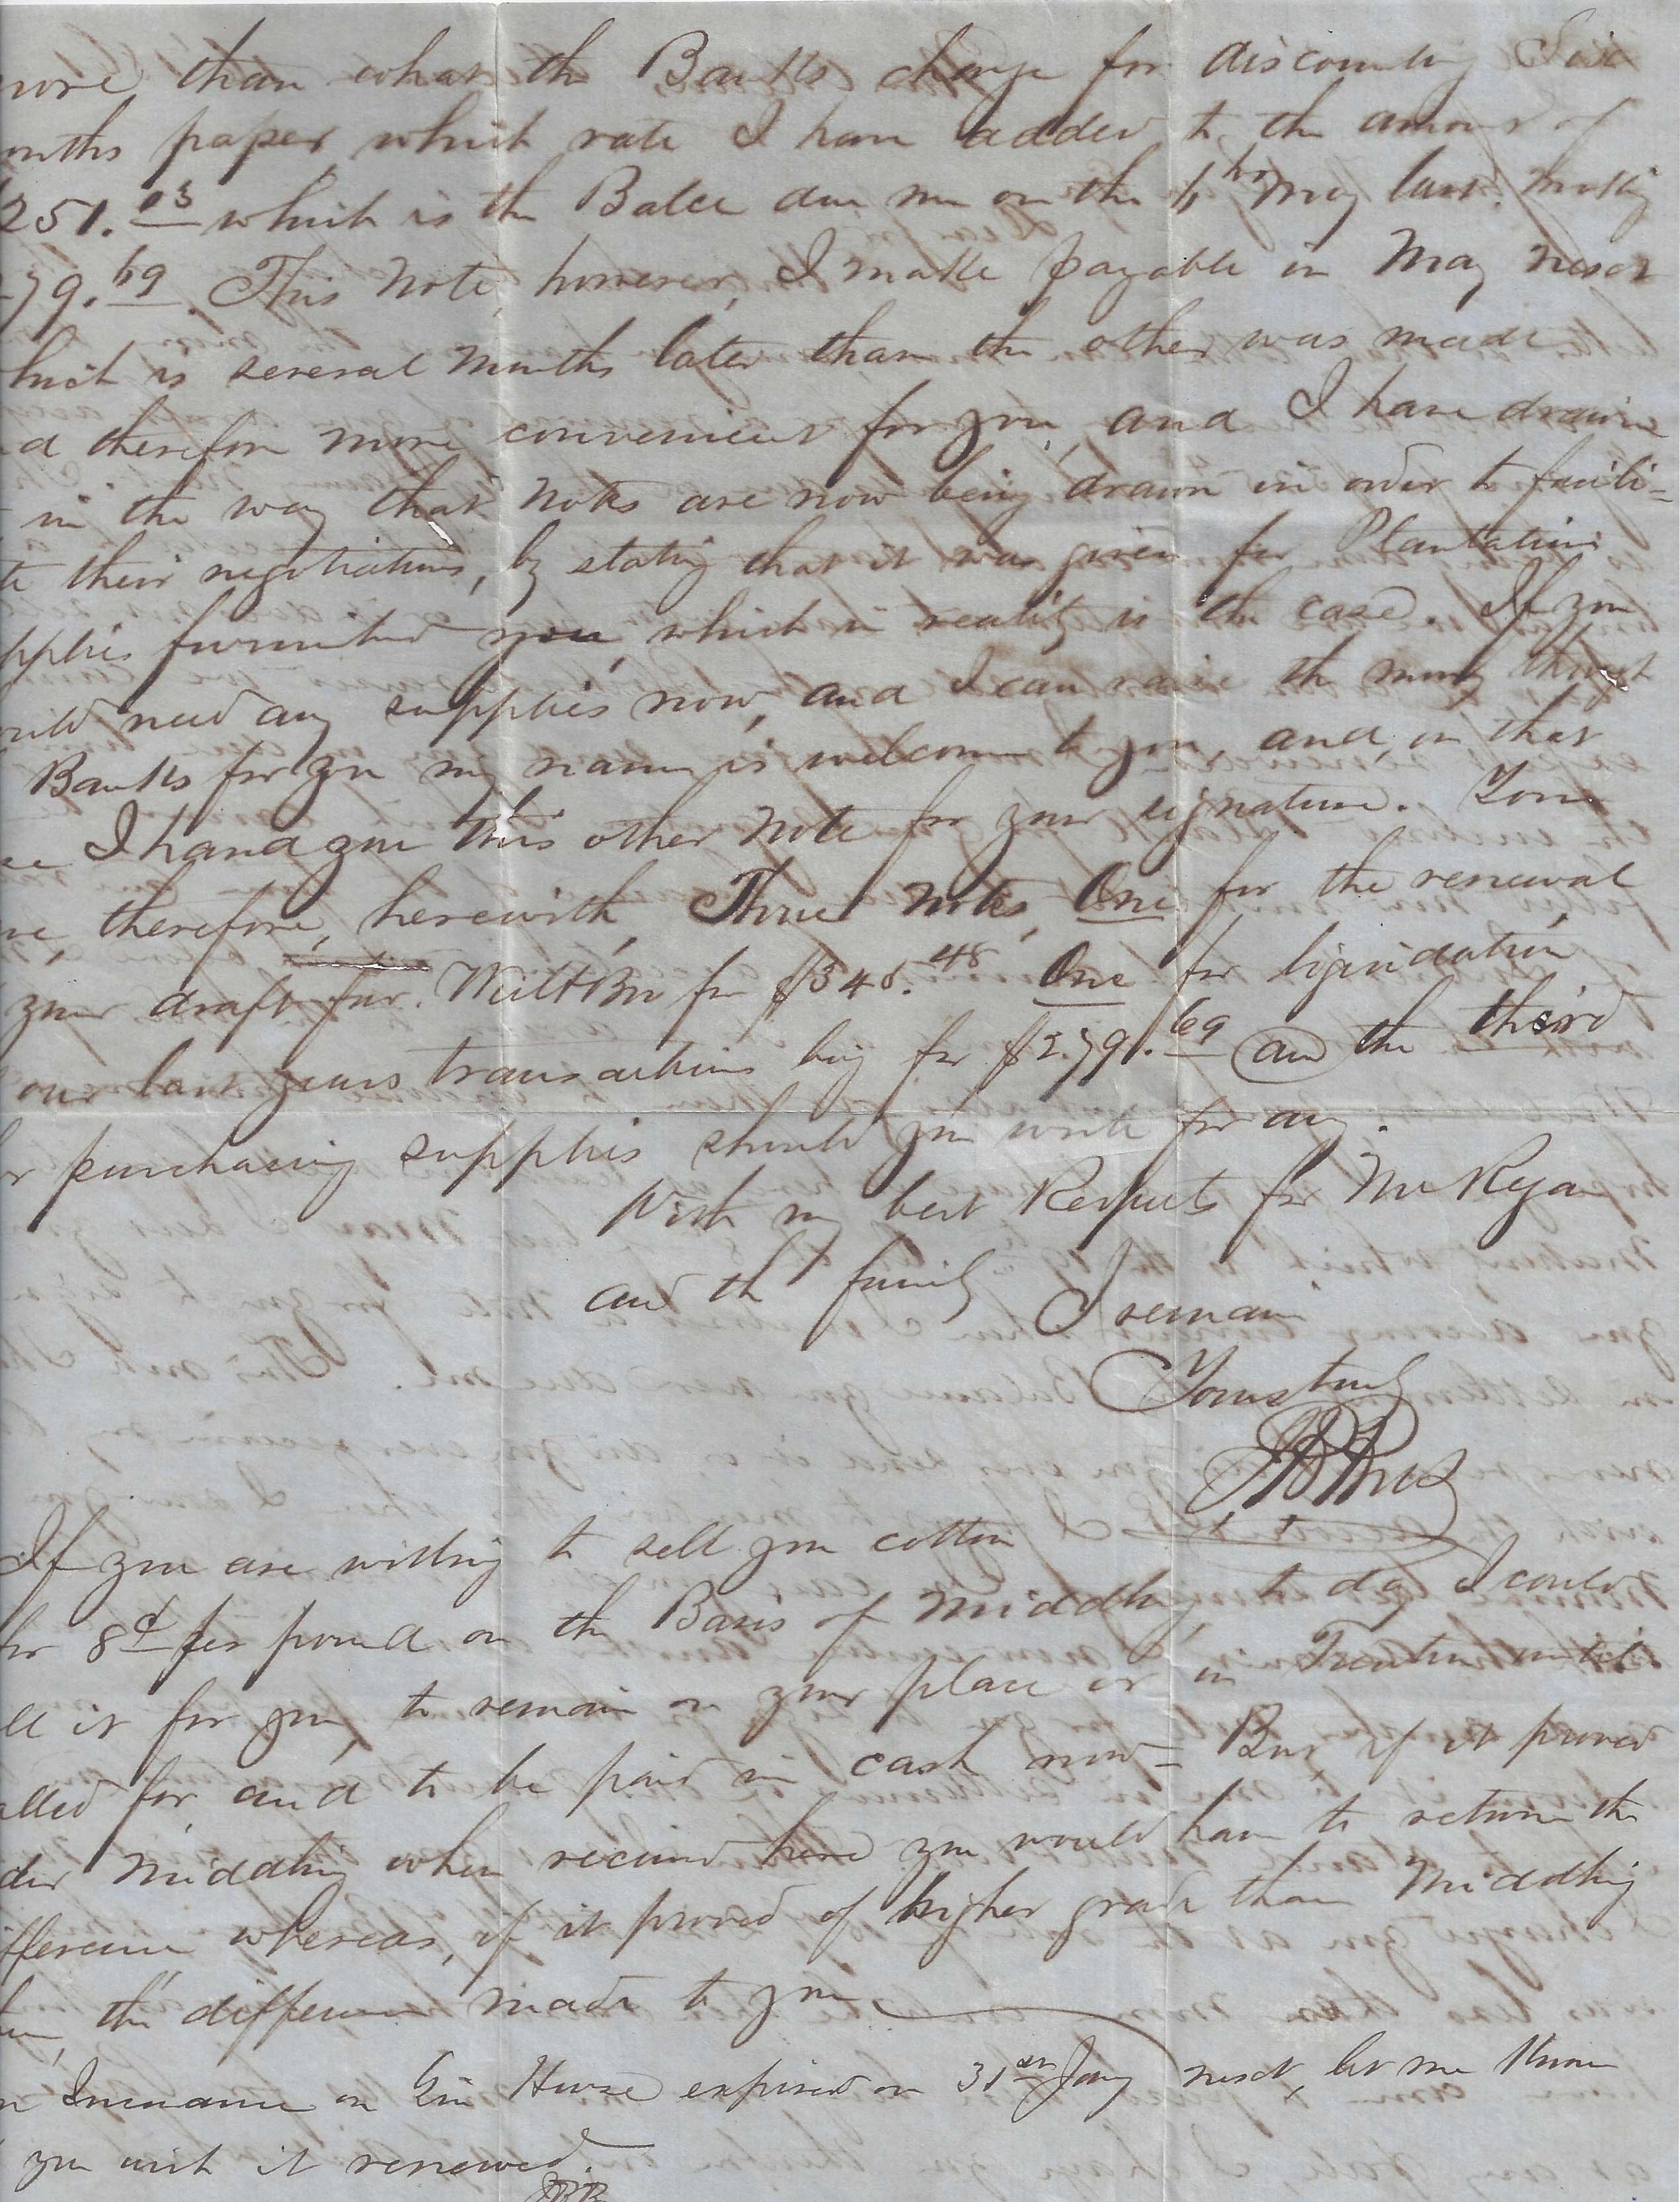 more than what the Banks charge for discounting Said
onths paper which rate I have added to the amount of
251.03 which is the Balce due me on the 4th May last. making
279.69. This Note, however, I make payable in May next
hich is several months later than the other was made
d therefore more convenient for you, and I have drawn
in the way that Notes are now being drawn in order to facili=
te their negotiations, by stating that it was given for Plantation
pplies furnished you, which in reality is the case. If you
ould need any supplies now, and I can raise the money through
Banks for you my name is welcome to you, and, in that
se I hand you this other Note for your signature. You
ve, therefore, herewith, Three Notes, One for the renewal
your draft fav. for $348.48 One for liquidation
our last years transactions being for $279.69 and the third
or purchasing supplies should you wish for any.
With my best Respects for Mr Ryan
and the family I remain
Yours truly
If you are willing to sell you cotton
for 8¢ per pound on the Basis of Middling, to day I could
ll it for you, to remain on your place or in Trenton until
alled for, and to be paid in cash now = But, if it proved
der Middling when received here you would have to return the
ifference whereas, if it proved of higher grade than Middling
the difference made to you.
Insurance on Gin House expires on 31st Jany next, let me know
you wish it renewed.